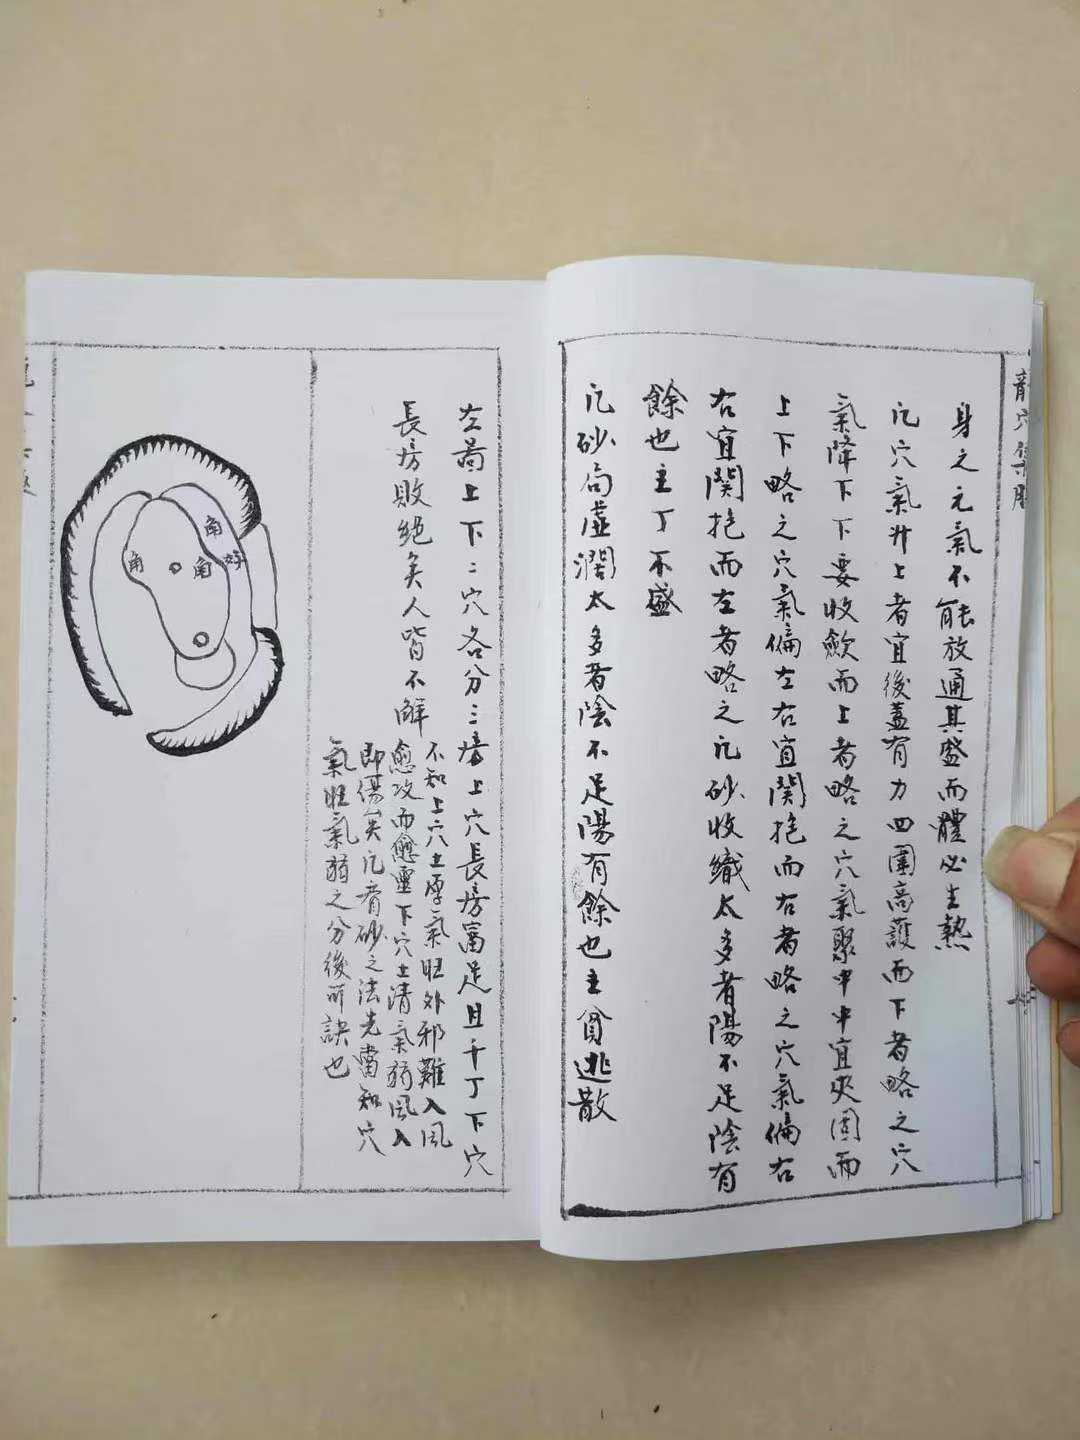 身之元氣不能放通其盛而體必生熱
凡穴氣升上者宜後蓋有力四圍高護而下者略之穴
氣降下下要收斂而上者略之穴氣聚中中宜夾固而
上下略之穴氣偏左右宜関抱而右者略之穴氣偏右
右宜関抱而左者略之凡砂收織太多者陽不足陰有
餘也主丁不盛
凡砂句虛濶太多者陰不足陽有餘也主貧逃散
左圖上下二穴各分三房上穴長房富足且千丁下穴
長房敗絕矣人皆不解
不知上穴土厚氣旺外邪難入風
愈攻而愈靈下穴土清氣弱風入
即傷矣凡看砂之法先當知穴
氣旺氣弱之分後所訣也
角
好
角
角
龍穴